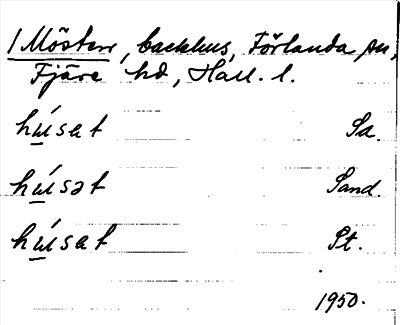 / Mösten, backhus, Förlanda sn,
Fjäre hd, Hall. l.
hú̲sat Sa.
hú̲sət Sand.
hú̲sat St.
1950.